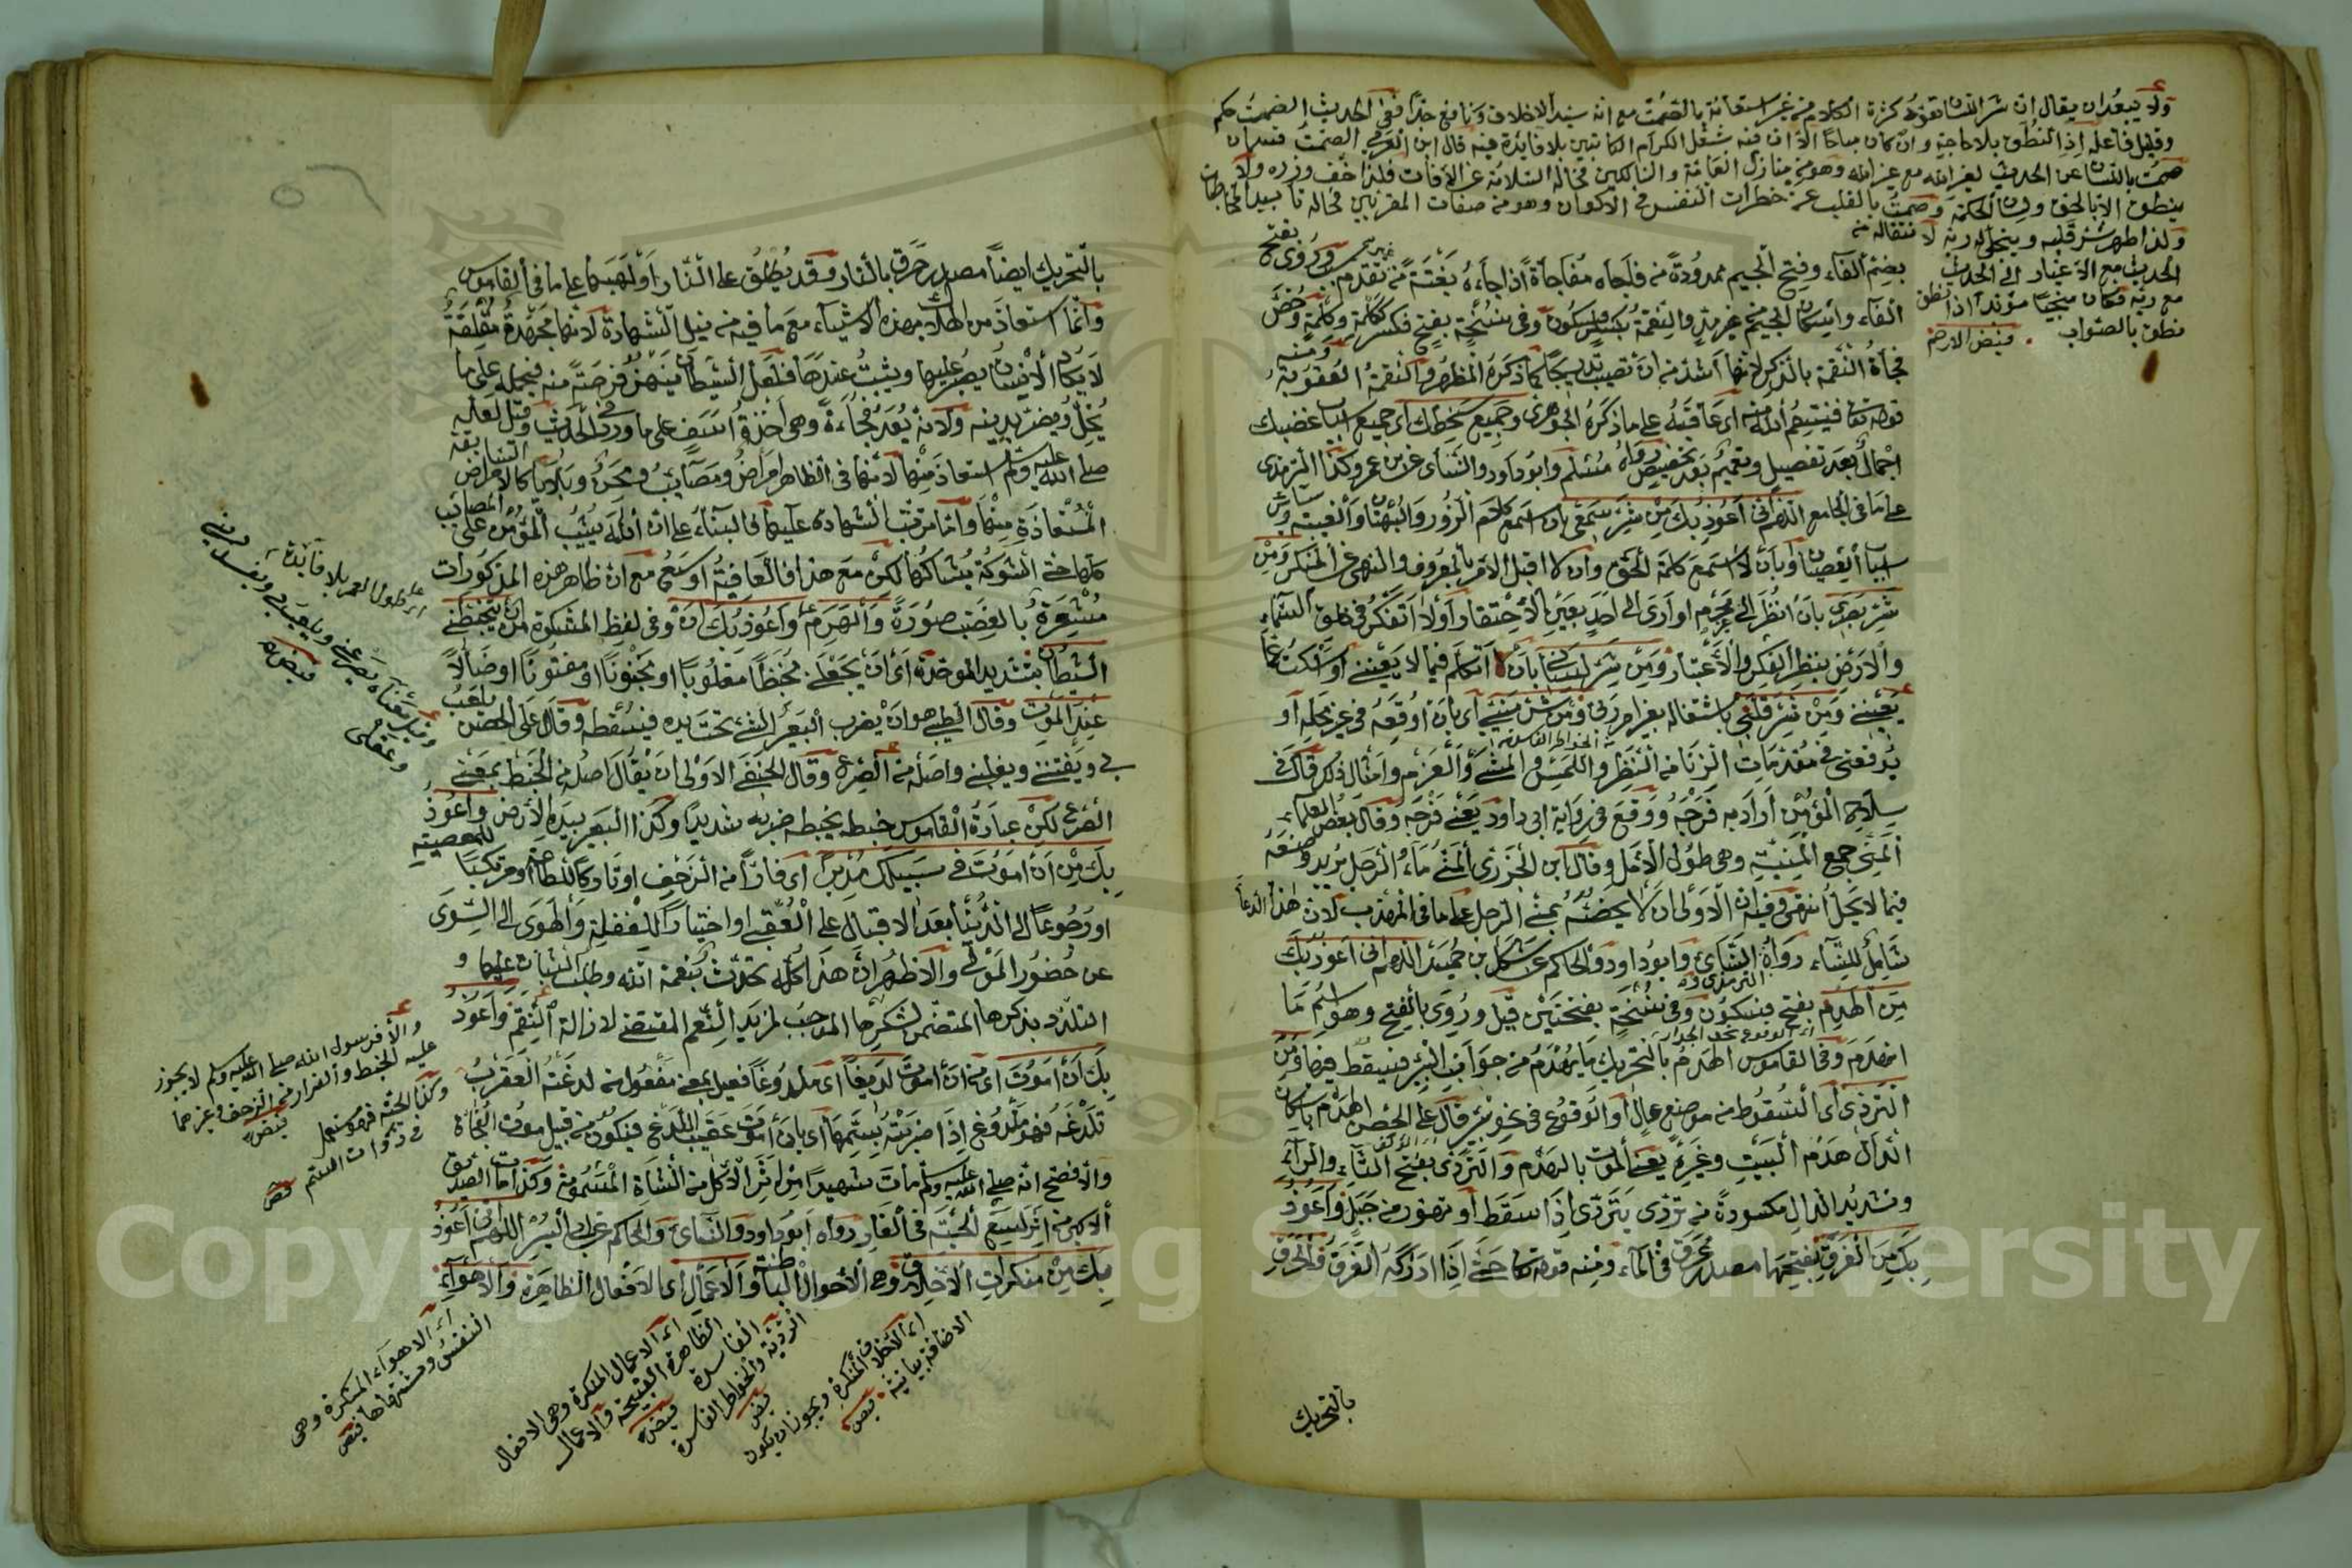 ولا يبعد ان يقال ان شر اللسان تفوه كثرة الكلام من غير استعانة بالصمت مع انه سيد الاخلاق ونافع جدا ففي الحديث الصمت حكم
وقليل فاعله اذ النطق بلا حاجة وان كان مباحا الا ان فيه شغل الكرام الكاتبين بلا فائدة فيه قال ابن العربي الصمت قسمان
صمت باللسان عن الحديث لغير الله مع غير الله وهو من منازل العامة والسالكين في حالة السلامة عن الآفات فلذا خف وزره ولا
ينطق الا بالحق ولسان الحكمة وصمت بالقلب عن خطرات النفس في الاكوان وهو من صفات المقربين في حالة
ولذا طهر سر قلبه ويتجلى له ربه لا نتقاله من
الحديث مع الاغيار الى الحديث
مع ربه فكان منجيا مؤيدا اذا نطق
نطق بالصواب . فيض الارحم
بضم الفاء وفتح الجيم ممدودة من فاجاه مفاجأة اذا جاءه بغتة من غير تقدم سبب وروي بفتح
الفاء واسكان الجيم من غير مد والنقمة بكسر وسكون وفي نسخة بفتح فكسر ككلمة وكلمة وخص
فجأة النقمة بالذكر لانها اشد من ان تصيب تدريجا كما ذكره المظهر والنقمة العقوبة ومنه
قوله تعالى فينتقم الله منه اي عاقبه على ما ذكره الجوهري وجميع سخطك اي جميع اسباب غضبك
اجمال بعد تفصيل وتعميم بعد تخصيص رواه مسلم وابو داود والنسائي عن ابن عمرو كذا الترمذي
على ما في الجامع اللهم اني اعوذ بك من شر سمعي بان اسمع كلام الزور والبهتان والغيبة وسائر
اسباب العصيان او بان لا اسمع كلمة الحق وان لا اقبل الامر بالمعروف والنهي عن المنكر ومن
شر بصري بان انظر الى محرم او ارى الى احد بعين الاحتقار او لا اتفكر في خلق السماء
والارض بنظر الفكر والاعتبار ومن شر لساني بان اتكلم فيما لا يعنيني او اسكت عما
يعنيني ومن شر قلبي باشتغاله بغير امر ربي ومن شر منيي اي بان اوقعه في غير محله او
من الخواطر الفاسدة
يوقعني في مقدمات الزنا من النظر واللمس والمشي والعزم وامثال ذلك وقال في
سلاح المؤمن اراد به فرجه ووقع في رواية ابي داود يعني فرجه وقال بعض العلماء
المني جمع المنية وهي طول الامل وقال ابن الجزري المني ماء الرجل يريد وضعه
فيما لا يحل انتهى وفيه ان الاولى ان لا يخصه بمني الرجل على ما في المهذب لان هذا الدعاء
شامل للنساء رواه النسائي وابو داود والحاكم عن شكل بن حميد اللهم اني اعوذ بك
الترمذي
من الهدم بفتح فسكون وفي نسخة بفتحتين قيل وروي بالفتح وهو اسم ما
انهدم وفي القاموس الهدم بالتحريك ما يهدم من جوانب البئر فيسقط فيها ومن
التردي اي السقوط من موضع عال او الوقوع في نحو بئر قال علي الحصن الهدم باسكان
الدال هدم البيت وغيره يعني الموت بالهدم والتردي بفتح التاء والراء
وتشديد الدال مكسورة من تردى يتردى اذا سقط او تهور من جبل واعوذ
بك من الغرق بفتحها مصدر غرق في الماء ومنه قوله تعالى حتى اذا ادركه الغرق والحرق
بالتحريك
بالتحريك ايضا مصدر حرق بالنار وقد يطلق على النار او لهبها على ما في القاموس
وانما استعاذ من الهلاك بهذه الاشياء مع ما فيه من نيل الشهادة لانها مجهدة مقلقة
لا يكاد الانسان يصبر عليها ويثبت عندها فلعل الشيطان ينهز فرصة منه فيحمله على ما
يخل ويضر بدينه ولانه يعد فجاءة وهي اخذة اسف على ما ورد في الحديث وقيل لعله
صلى الله عليه وسلم استعاذ منها لانها في الظاهر امراض ومصائب ومحن وبلايا كالامراض السابقة
المستعاذة منها واما ترتب الشهادة عليها فللبناء على ان الله يثيب المؤمن على المصائب
كلها حتى الشوكة يشاكها لكن مع هذا فالعافية اوسع مع ان ظاهر هذه المذكورات
مشعرة بالغضب صورة والهرم واعوذ بك ان وفي لفظ المشكوة من ان يتخبطني
الشيطان بتشديد الموحدة اي ان يجعلني مخبطا مغلوبا او مجنونا او مفتونا او ضالا
عند الموت وقال الطيبي هو ان يضرب البعير الشيء تحت يده فيسقطه وقال علي الحصن يلعب
بي ويفتنني ويغلبني واصله من الصرع وقال الحنفي الاولى ان يقال اصله من الخبط بمعنى
الصرع لكن عبارة القاموس خبطه يخبطه ضربه شديدا وكذا البعير بيده الارض واعوذ
بك من ان اموت في سبيلك مدبرا اي فارا من الزحف او تاركا للطاعة او مرتكبا للمعصية
او رجوعا الى الدنيا بعد الاقبال على العقبى او اختيارا للغفلة والهوى الى السوى
عن حضور المولى والاظهر ان هذا كله تحدث بنعمة الله وطلب الثبات عليها و
التلذذ بذكرها المتضمن لشكرها الموجب لمزيد النعم المقتضي لازالة النقم واعوذ
بك ان اموت اي من ان اموت لديغا اي ملدوغا فعيل بمعنى مفعول من لدغته العقرب
تلدغه فهو ملدوغ اذا ضربته بسمها اي بان اموت عقيب اللدغ فيكون من قبيل موت الفجاة
والافصح انه صلى الله عليه وسلم مات شهيدا من اثر الاكل من الشاة المسمومة وكذا مات الصديق
الاكبر من اثر لسع الحية في الغار رواه ابو داود والنسائي والحاكم عن ابي اليسر اللهم اني اعوذ
بك من منكرات الاخلاق وهي الاحوال الباطنة والاعمال اي الافعال الظاهرة والاهواء
اي طول العمر بلا فائدة
والا فرسول الله صلى الله عليه وسلم لا يجوز
عليه الخبط والفرار من الزحف وغيرهما
فيض
اي الاهواء المنكرة وهي
النفس ومشتهاها فيض
اي الاعمال المنكرة وهي الافعال
الظاهرة القبيحة والاعمال
الفاسدة فيض
الردية والخواطر الفاسدة
فيض
اي الاخلاق المنكرة ويجوز ان يكون
الاضافة بيانية فيض